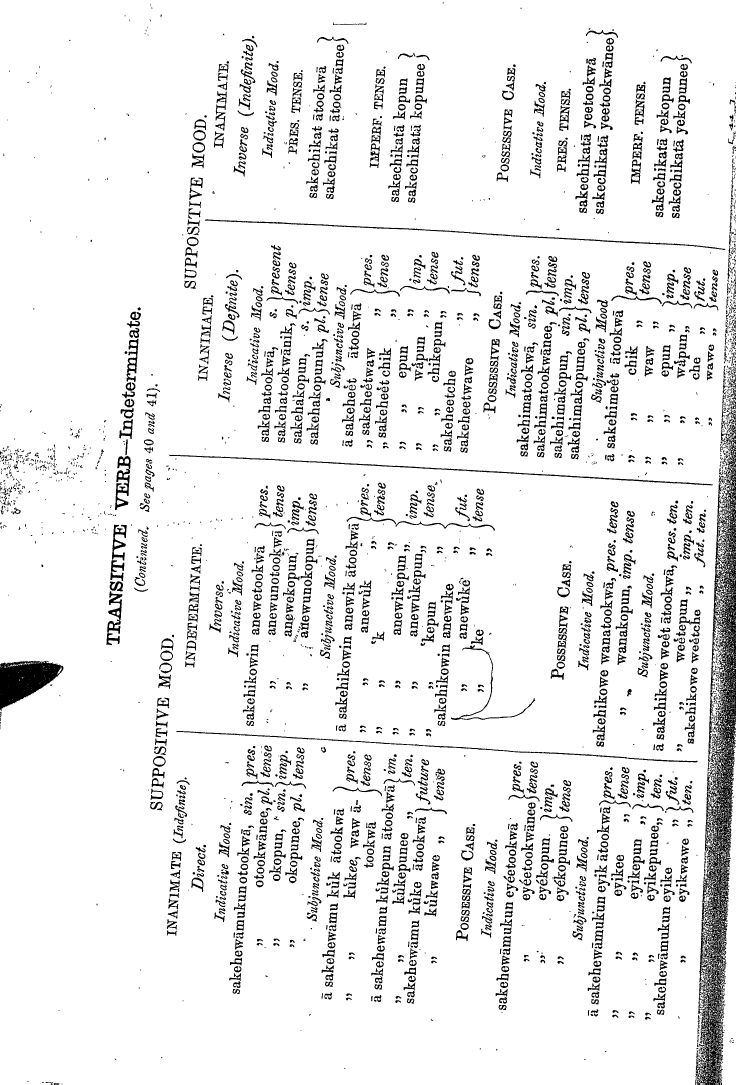 TRANSITIVE VERB—Indeterminate.
(Continued. See pages 40 and 41).
SUPPOSITIVE MOOD.
INANIMATE (Indefinite).
Direct.
Indicative Mood.
sakehewāmukun otookwā, sin. } pres.
„ otookwānee, pl. } tense
„ okopun, sin. } imp.
„ okopunee, pl. } tense
Subjunctive Mood.
ā sakehewāmu kŭk ātookwā } pres.
„ „ kŭkee, waw ā- } tense
tookwā
ā sakehewāmu kŭkepun ātookwā } im.
„ „ kŭkepunee „ } ten.
sakehewāmu kŭke ātookwā } future
„ kŭkwawe „ } tense
POSSESSIVE CASE.
Indicative Mood.
sakehewāmukun eyéetookwā } pres.
„ eyéetookwānee } tense
„ eyékopun } imp.
„ eyékopunee } tense
Subjunctive Mood.
ā sakehewāmukun eyik ātookwā } pres.
„ „ eyikee „ } tense
„ „ eyikepun „ } imp.
„ „ eyikepunee „ } ten.
sakehewāmukun eyike „ } fut.
„ eyikwawe „ } ten.
INDETERMINATE.
Inverse.
Indicative Mood.
sakehikowin anewetookwā } pres.
„ anewunotookwā } tense
„ anewekopun } imp.
„ anewunokopun } tense
Subjunctive Mood.
ā sakehikowin anewik ātookwā } pres.
„ „ anewŭk „ } tense
„ „ 'k „
„ „ anewikepun „ } imp.
„ „ anewŭkepun „ } tense
„ „ 'kepun „
sakehikowin anewike „ } fut.
„ anewŭke „ } tense
„ 'ke „
POSSESSIVE CASE.
Indicative Mood.
sakehikowe wanatookwā, pres. tense
„ wanakopun, imp. tense
Subjunctive Mood.
ā sakehikowe weét ātookwā, pres. ten.
„ „ weétepun „ imp. ten.
sakehikowe weétche „ fut. ten.
SUPPOSITIVE MOOD.
INANIMATE.
Inverse (Definite).
Indicative Mood.
sakehatookwā, s. } present
sakehatookwānik, p. } tense
sakehakopun, s. } imp.
sakehakopunuk, pl. } tense
Subjunctive Mood.
ā sakeheét ātookwā } pres.
„ sakeheétwaw „ } tense
„ sakeheét chik „
„ „ epun „ } imp.
„ „ wápun „ } tense
„ „ chikepun „
sakeheetche „ } fut.
sakeheetwawe „ } tense
POSSESSIVE CASE.
Indicative Mood.
sakehimatookwā, sin. } pres.
sakehimatookwānee, pl. } tense
sakehimakopun, sin. } imp.
sakehimakopunee, pl. } tense
Subjunctive Mood
ā sakehimeét ātookwā } pres.
„ „ chik „ } tense
„ „ waw „
„ „ epun „ } imp.
„ „ wápun „ } tense
„ che „ } fut.
„ wawe „ } tense
INANIMATE.
Inverse (Indefinite).
Indicative Mood.
PRES. TENSE.
sakechikat ātookwā }
sakechikat ātookwānee }
IMPERF. TENSE.
sakechikatā kopun }
sakechikatā kopunee }
POSSESSIVE CASE.
Indicative Mood.
PRES. TENSE.
sakechikatā yeetookwā }
sakechikatā yeetookwānee }
IMPERF. TENSE.
sakechikatā yekopun }
sakechikatā yekopunee }